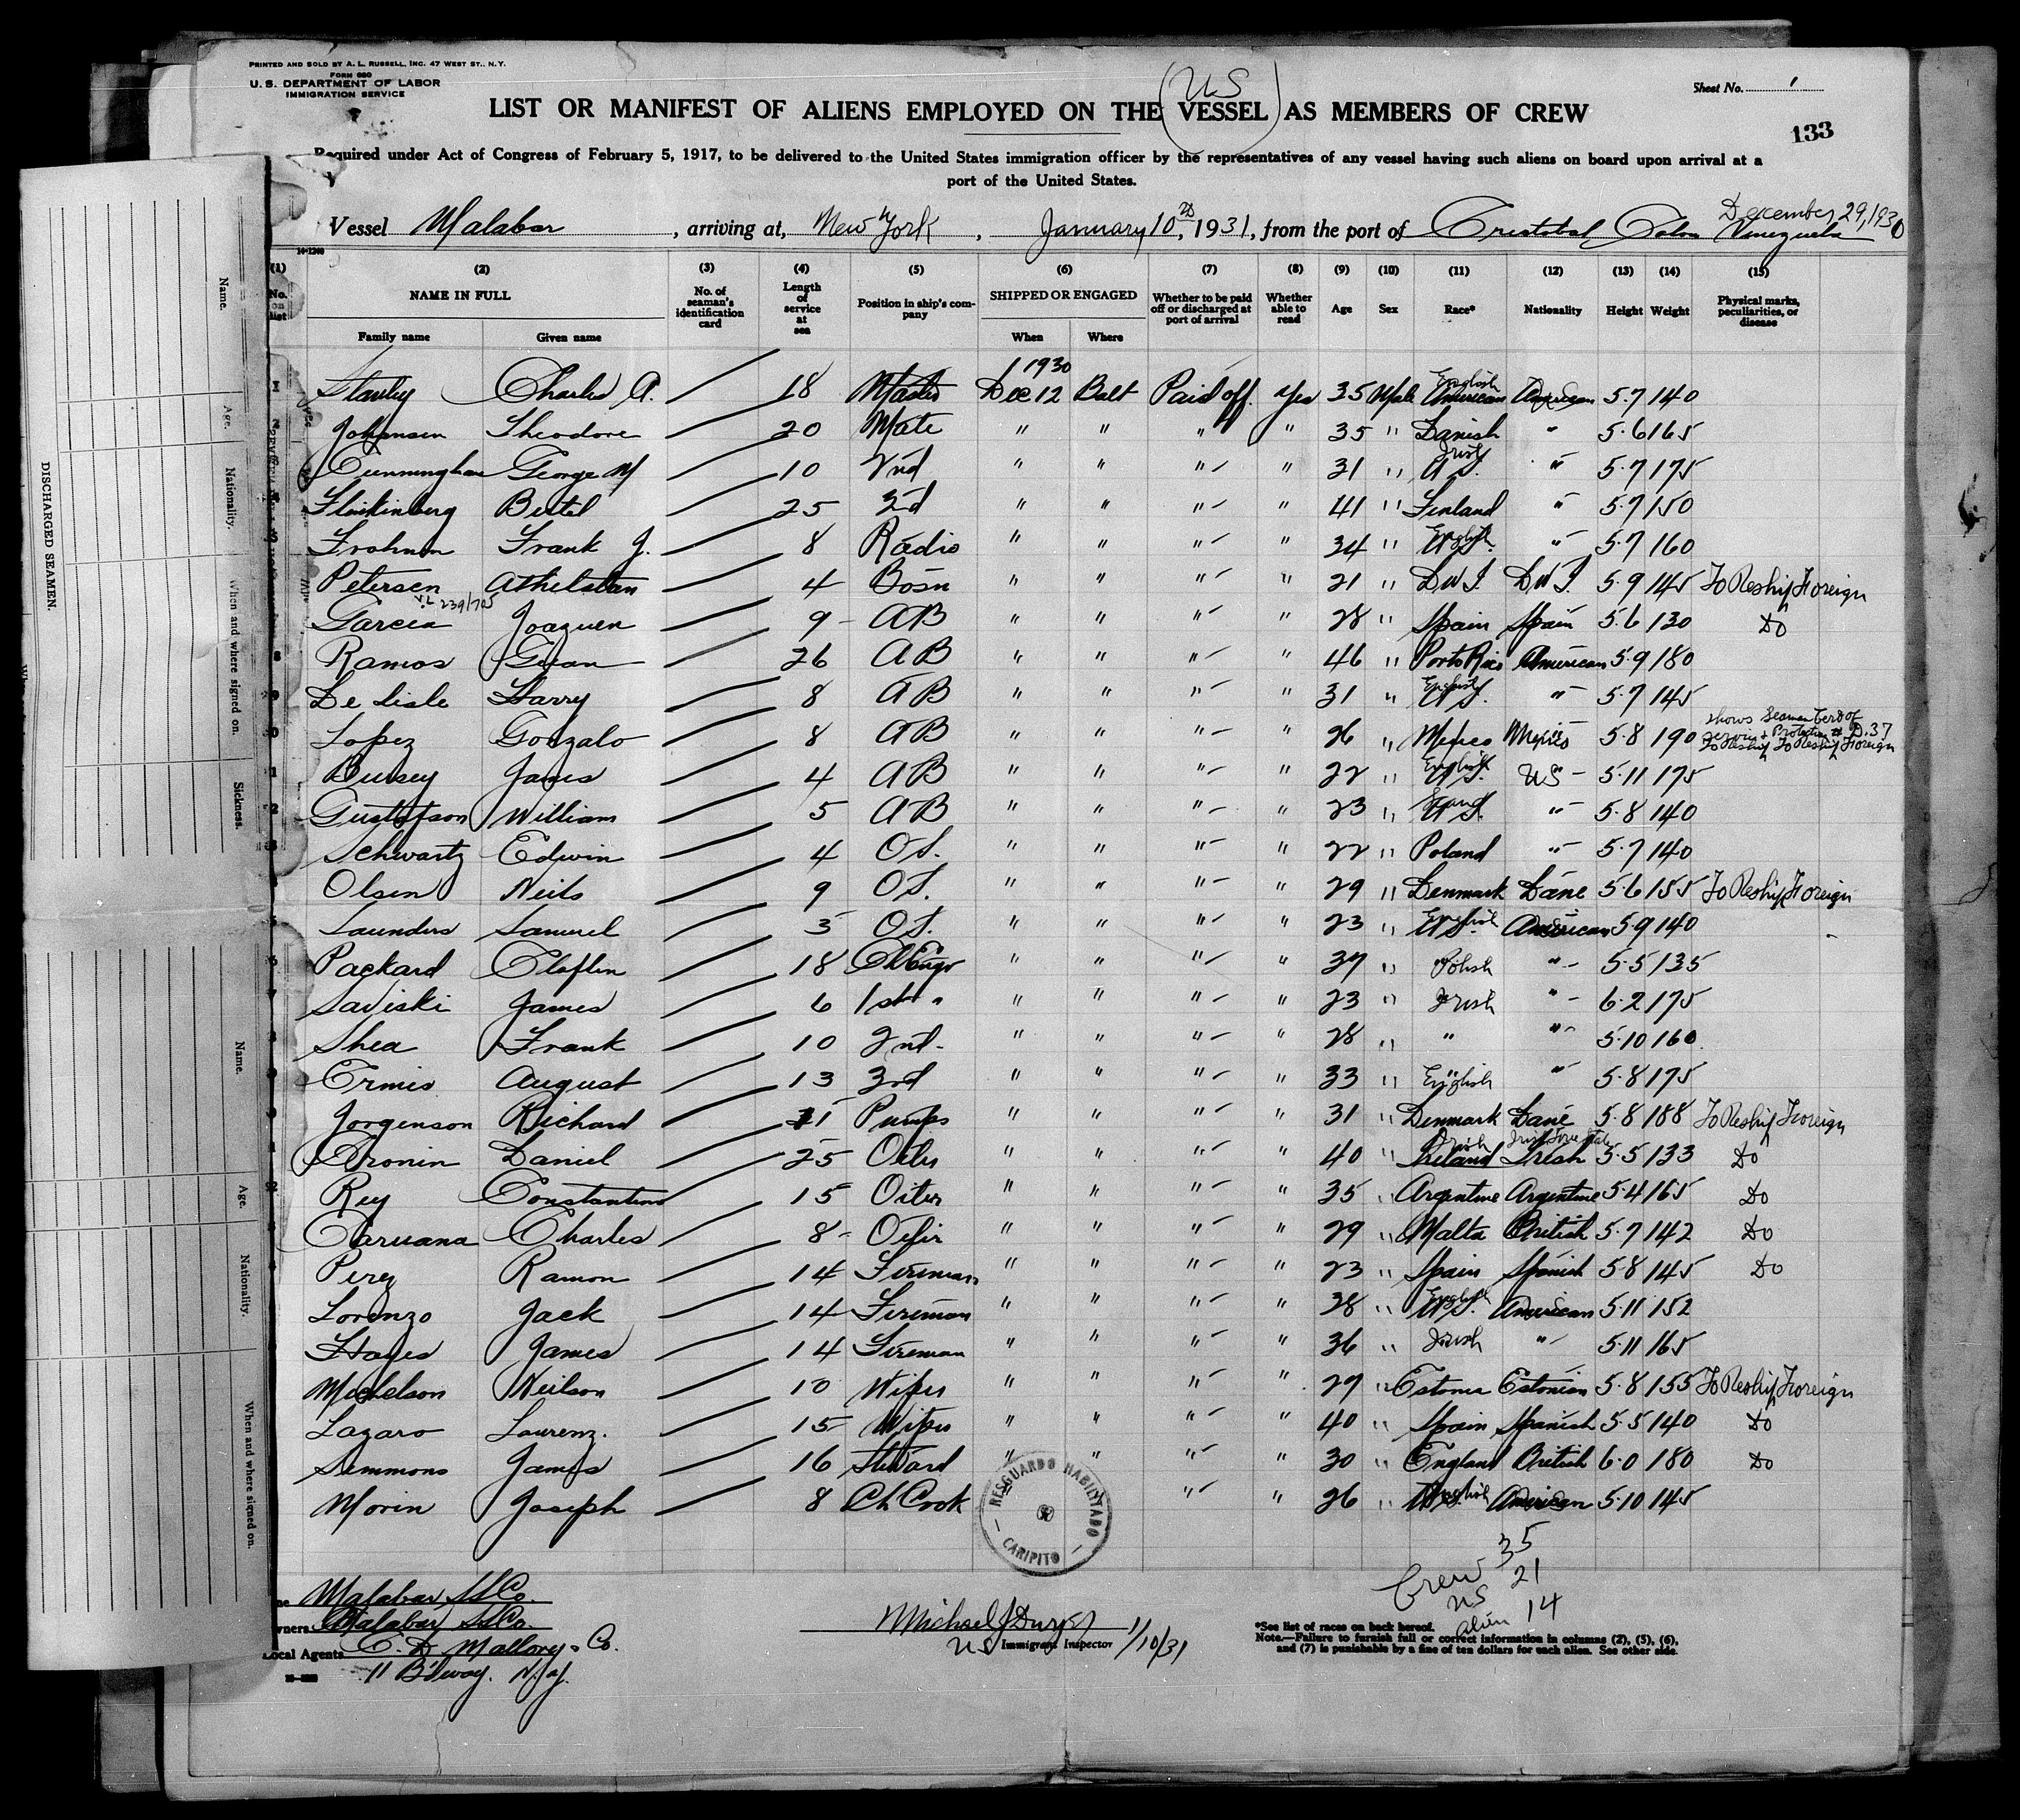 PRINTED AND SOLD BY A. L. RUSSELL, INC. 47 WEST ST., N.Y.
FORM 680
U. S. DEPARTMENT OF LABOR
IMMIGRATION SERVICE
Sheet No. 1
(US)
LIST OR MANIFEST OF ALIENS EMPLOYED ON THE VESSEL AS MEMBERS OF CREW
133
Required under Act of Congress of February 5, 1917, to be delivered to the United States immigration officer by the representatives of any vessel having such aliens on board upon arrival at a
port of the United States.
December 29, 1930
Vessel Malabar, arriving at, New York, January 10th, 1931, from the port of Cristobal Colon Venezuela
14-1240
(1) (2) (3) (4) (5) (6) (7) (8) (9) (10) (11) (12) (13) (14) (15)
No. on list NAME IN FULL Family name Given name No. of seaman's identification card Length of service at sea Position in ship's company SHIPPED OR ENGAGED When Where Whether to be paid off or discharged at port of arrival Whether able to read Age Sex Race* Nationality Height Weight Physical marks, peculiarities, or disease
1930
1 Stanley Charles A. 18 Master Dec 12 Balt Paid off Yes 35 Male American English American 5.7 140
2 Johansen Theodore 20 Mate " " " " 35 " Danish " 5.6 165
Cunningham George M 10 2nd " " " " 31 " U S. Irish " 5.7 175
Bertel 25 3d " " " " 41 " Finland " 5.7 150
Frohman Frank J. 8 Radio " " " " 34 " U S. English " 5.7 160
Petersen Athelstan 4 Bosn " " " " 21 " D W I. D W I. 5.9 145 To Reship Foreign
V.L 239/705
Garcia Joaquen 9 A B " " " " 28 " Spain Spain 5.6 130 Do
8 Ramos Guan 26 A B " " " " 46 " Porto Rico American 5.9 180
9 De Lisle Harry 8 A B " " " " 31 " U S. English " 5.7 145
0 Lopez Gonzalo 8 A B " " " " 26 " Mexico Mexico 5.8 190 shows Seaman Cert of service & Protection # D.37 To Reship To Reship Foreign
1 Bussey James 4 A B " " " " 22 " U S. English US 5.11 175
2 Gustafson William 5 A B " " " " 23 " U S. Scand " 5.8 140
Schwartz Edwin 4 O S. " " " " 22 " Poland " 5.7 140
Olsen Neils 9 O S. " " " " 29 " Denmark Dane 5.6 155 To Reship Foreign
5 Saunders Samuel 3 O S. " " " " 23 " U S. English American 5.9 140
Packard Claflin 18 Ch Engr " " " " 37 " Polish " 5.5 135
7 Saviski James 6 1st " " " " " 23 " Irish " 6.2 175
Shea Frank 10 2nd " " " " 28 " " " 5.10 160
Ermis August 13 3rd " " " " 33 " English " 5.8 175
Jorgenson Richard Pumps " " " " 31 " Denmark Dane 5.8 188 To Reship Foreign
1 Cronin Daniel 25 Oiler " " " " 40 " Ireland Irish Irish Irish Free State 5.5 133 Do
2 Rey Constantino 15 Oiler " " " " 35 " Argentine Argentine 5.4 165 Do
Caruana Charles 8 Oiler " " " " 29 " Malta British 5.7 142 Do
Perez Ramon 14 Fireman " " " " 23 " Spain Spanish 5.8 145 Do
Lorenzo Jack 14 Fireman " " " " 38 " U S. English American 5.11 152
Hayes James 14 Fireman " " " " 36 " Irish " 5.11 165
Michelson Neilson 10 Wiper " " " " 27 " Estonia Estonian 5.8 155 To Reship Foreign
Lazaro Laurenz. 15 Wiper " " " " 40 " Spain Spanish 5.5 140 Do
Simmons James 16 Steward " " " " 30 " England British 6.0 180 Do
Morin Joseph 8 Ch Cook " " 26 " U S. English American 5.10 145
RESGUARDO HABILITADO
CARIPITO
Crew 35
US 21
alien 14
Malabar SS Co.
Owners Malabar SS Co.
Local Agents C. D. Mallory & Co.
11 B'dway. N.Y.
Michael J
US Immigrant Inspector 1/10/31
*See list of races on back hereof.
Note.—Failure to furnish full or correct information in columns (2), (5), (6),
and (7) is punishable by a fine of ten dollars for each alien. See other side.
DISCHARGED SEAMEN.
Name.
Age.
Nationality.
When and where signed on.
Sickness.
Name.
Age.
Nationality.
When and where signed on.